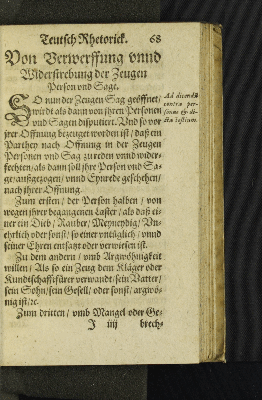 Teutsch Rhetorick. 68
Von Verwerffung vnnd
Widerstrebung der Zeugen
Person vnd Sage.
SO nun der Zeugen Sag geöffnet/
wirdt als dann von jhren Personen
vnd Sagen disputiert. Vnd so vor
jrer Offnung bezeuget worden ist/ daß ein
Parthey nach Offnung in der Zeugen
Personen vnd Sag zu reden vnnd wider-
fechten/ als dann soll jhre Person vnd Sa-
ge/ außgezogen/ vnnd Eynrede geschehen/
nach jhrer Offnung.
Ad dicendū
contra per-
sonas & di-
cta testium.
Zum ersten/ der Person halben/ von
wegen jhrer begangenen Laster/ als daß ei-
ner ein Dieb/ Rauber/ Meyneydig/ Vn-
ehrlich oder sonst/ so einer vntüglich/ vnnd
seiner Ehren entsatzt oder verwiesen ist.
Zu dem andern/ vmb Argwöhnigkeit
willen/ Als so ein Zeug dem Kläger oder
Kundtschafftfürer verwandt/ sein Vatter/
sein Sohn/ sein Gesell/ oder sonst/ argwö-
nig ist/ ꝛc.
Zum dritten/ vmb Mangel oder Ge-
J iiij brech-